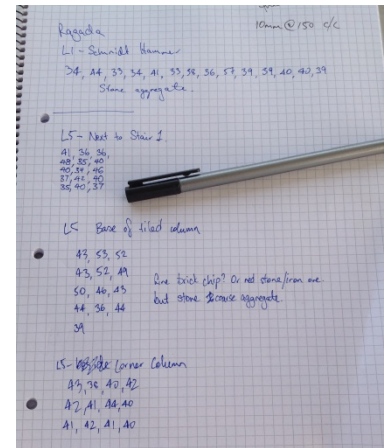 10mm @ 150 c/c
Ragadia
L1 - Schmidt Hammer
34, 44, 33, 34, 41, 33, 38, 36, 57, 39, 39, 40, 40, 39
Stone aggregate.
L5 - Next to Stair 1
41, 36 36,
48, 35, 40
40, 34, 46
37, 42, 40
35, 40, 37
L5 Base of tiled column
43, 53, 52
43, 52, 49
50, 46, 43
44, 36, 44
39
Fine brick chip? Or red stone/iron ore
but stone coarse aggregate.
L5 - Corner Column
43, 38, 40, 42
42, 41, 44, 40
41, 42, 41, 40